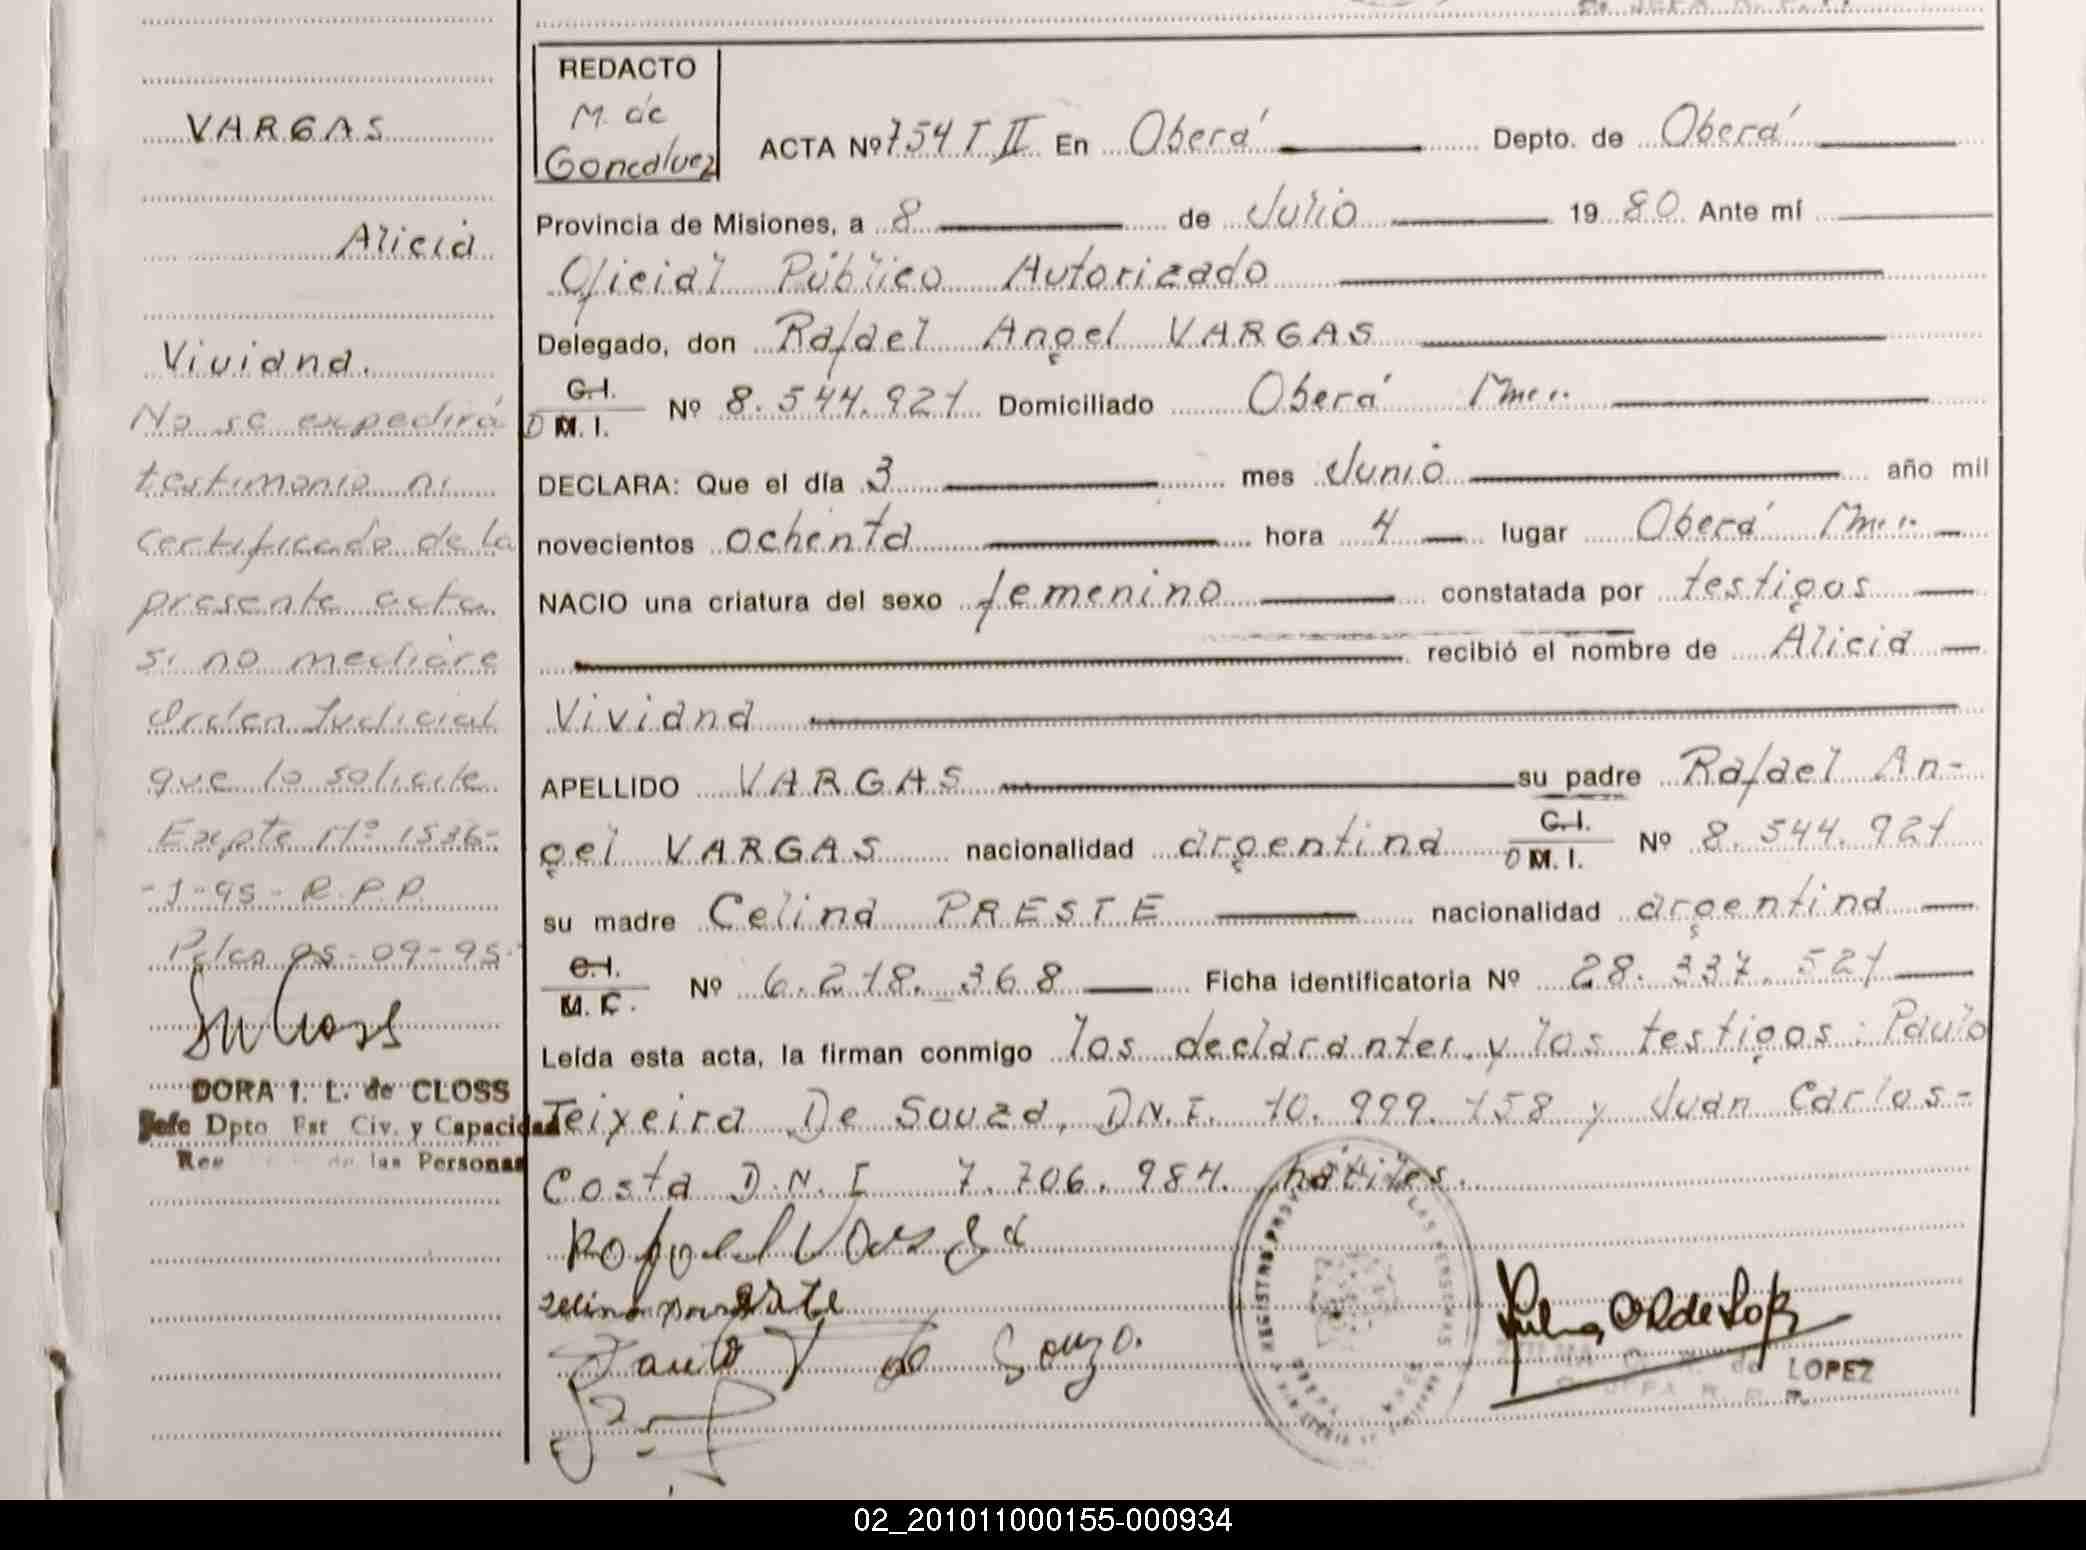 VARGAS
Alicia
Viviana.
No se expedirá
testimonio ni
certificado de la
presente acta
si no mediare
Orden Judicial
que lo solicite
Expte Nº 1536-
-J-95- R.P.P.
05-09-95-
DORA I. L. de CLOSS
Jefe Dpto Est Civ. y Capacidad
de las Personas
REDACTO
M. de
Goncalvez
ACTA Nº 754 T II En Oberá Depto. de Oberá
Provincia de Misiones, a 8 de Julio 19 80 Ante mí
Oficial Público Autorizado
Delegado, don Rafael Angel VARGAS
C.I.
D M. I. Nº 8.544.921 Domiciliado Oberá Mnes.
DECLARA: Que el día 3 mes Junio año mil
novecientos ochenta hora 4 lugar Oberá Mnes.
NACIO una criatura del sexo femenino constatada por testigos
recibió el nombre de Alicia
Viviana
APELLIDO VARGAS su padre Rafael An-
gel VARGAS nacionalidad argentina C.I. D M. I. Nº 8.544.921
su madre Celina PRESTE nacionalidad argentina
C.I.
M. C. Nº 6.218.368 Ficha identificatoria Nº 28.337.521
Leída esta acta, la firman conmigo los declarantes y los testigos: Paulo
Teixeira De Souza, D.N.I. 10.999.158 y Juan Carlos-
Costa D.N.I 7.706.984. hábiles.
Rafael Vargas
LOPEZ
02_201011000155-000934